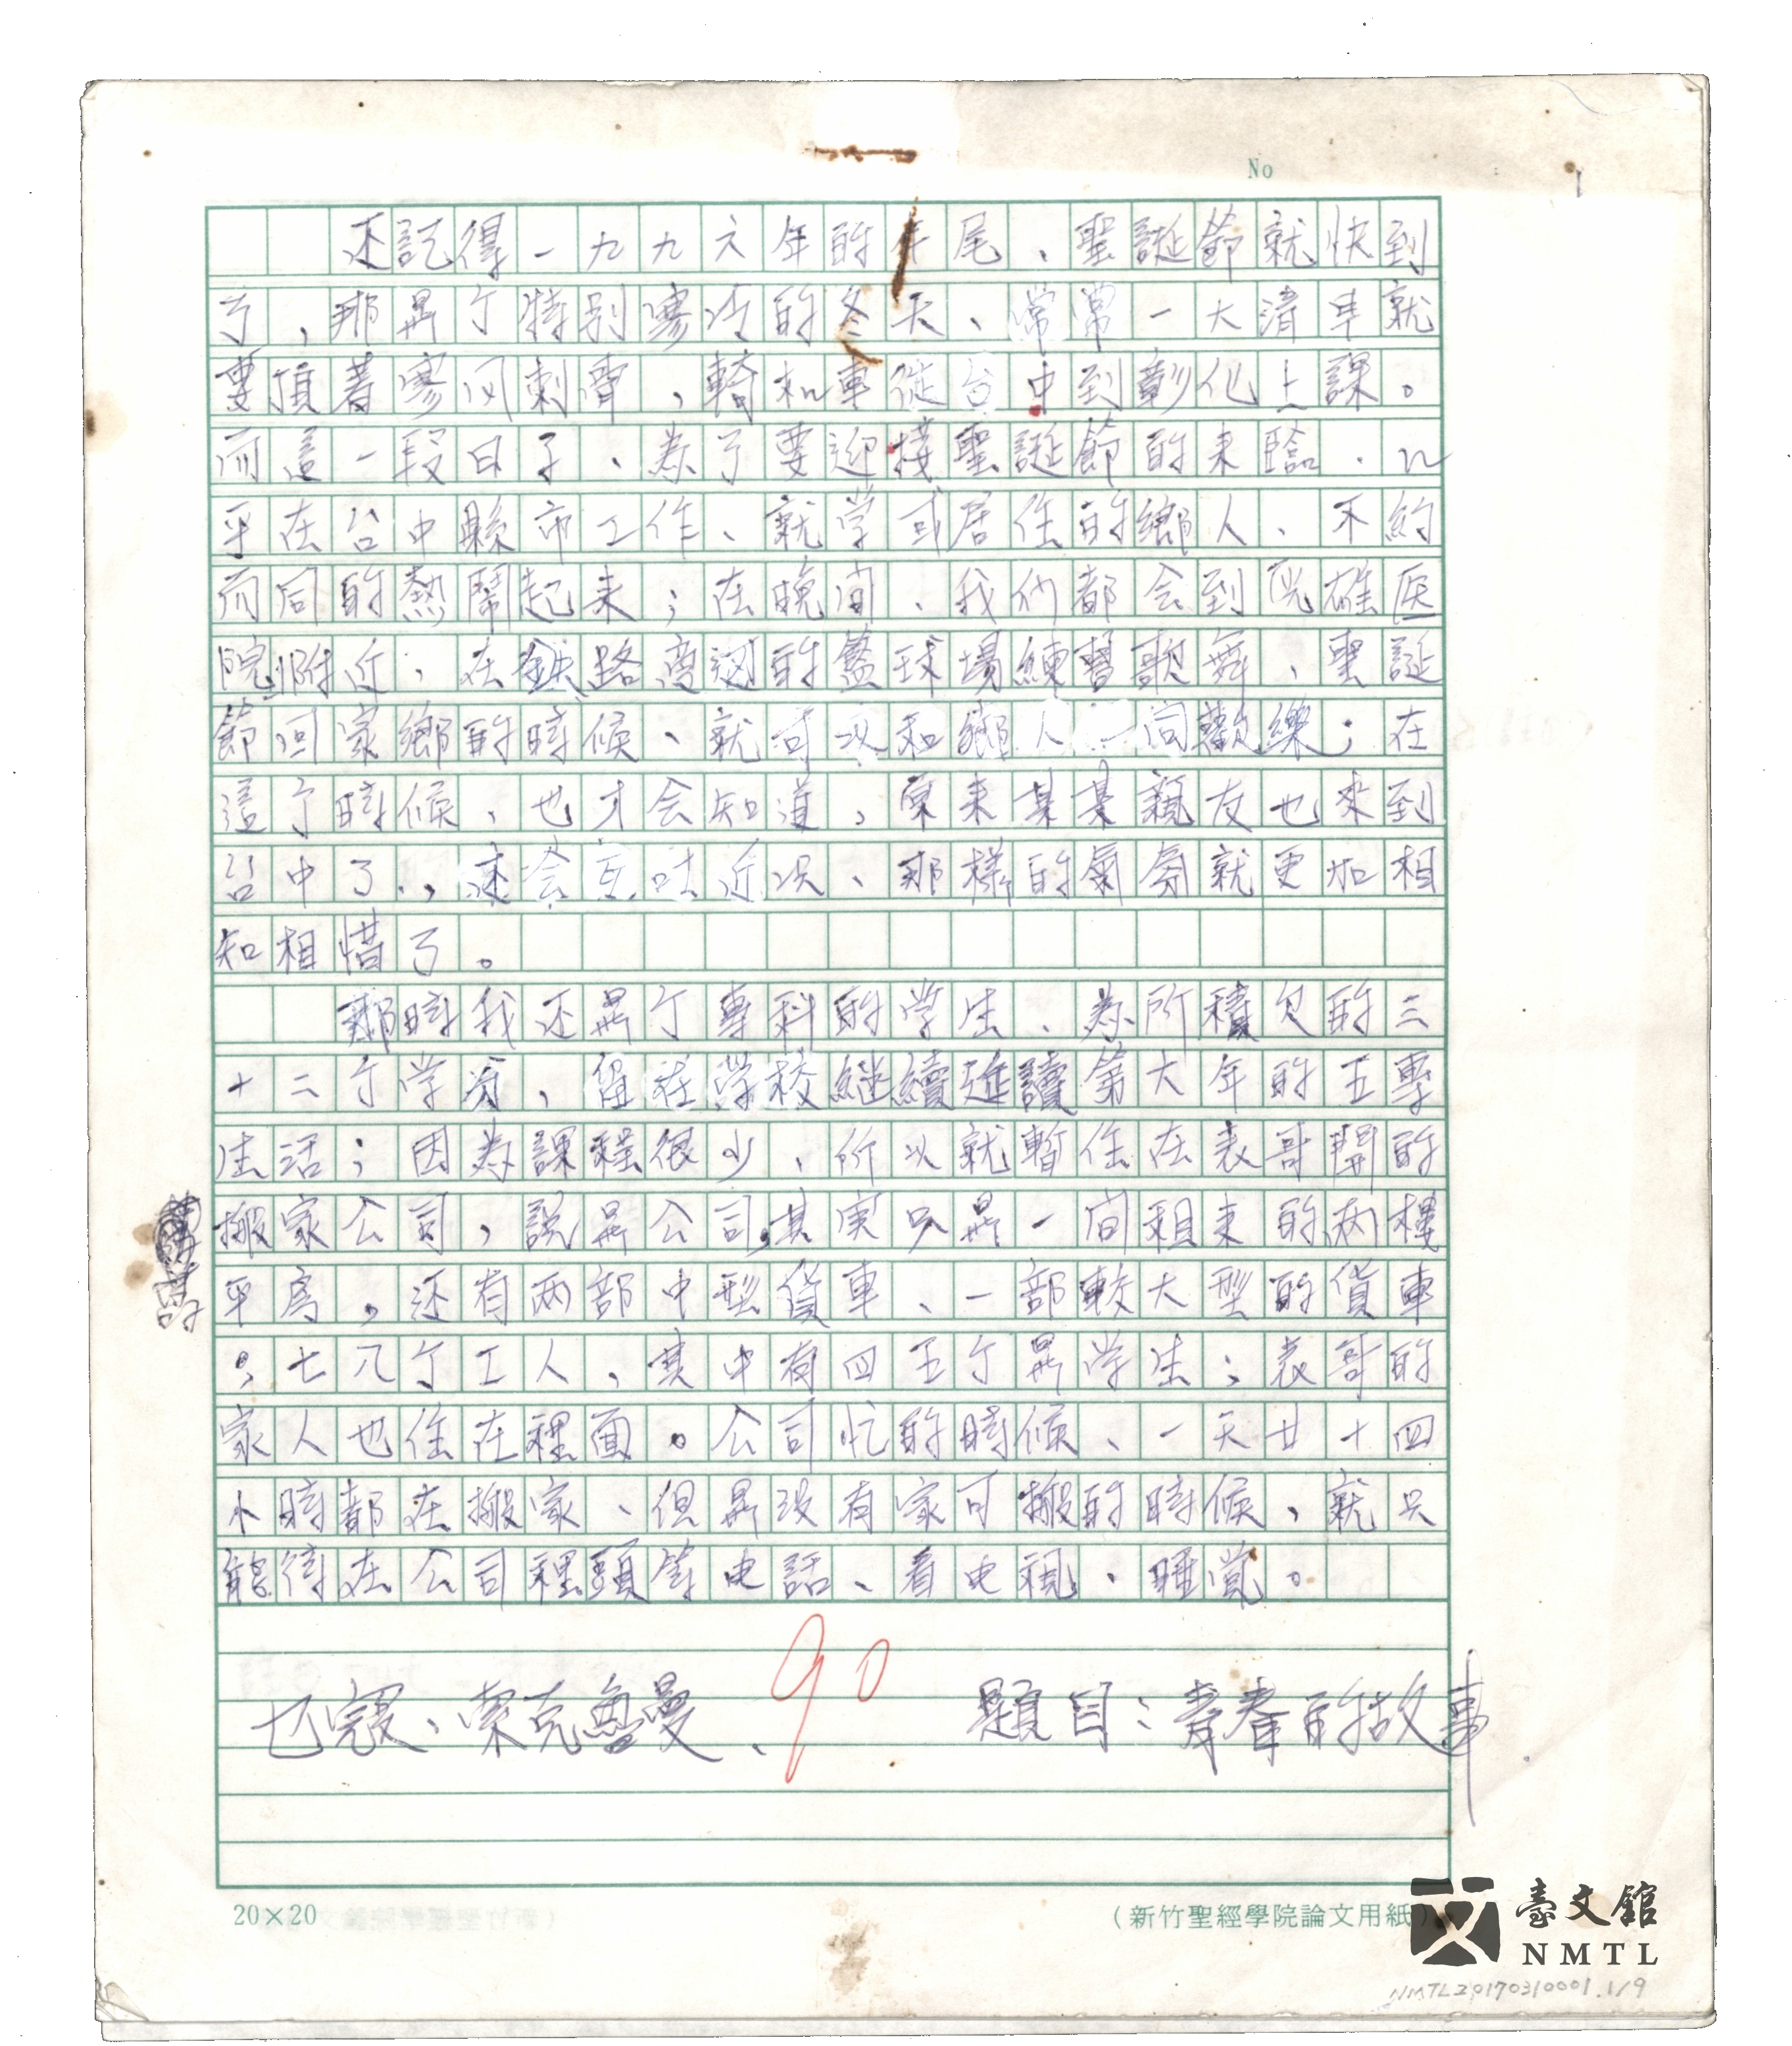 No
1
还記得一九九六年的年尾、聖誕節就快到
了,那是个特別寒冷的冬天、常常一大清早就
要頂著寒风刺骨,騎机車從台中到彰化上課。
而這一段日子、為了要迎接聖誕節的来臨、几
乎在台中縣市工作、就学或居住的鄉人、不約
而同的熱鬧起来;在晚间、我们都会到沅雄医
院附近,在鉄路旁边的籃球場練習歌舞、聖誕
節回家鄉的時候、就可以和鄉人一同歡樂;在
這个時候、也才会知道,原来某某親友也來到
台中了,、还会互吐近况、那樣的氣氛就更加相
知相惜了。
那時我还是个專科的学生、為所積欠的三
十二个学分、留在学校継續進讀第六年的五專
生活;因為課程很少、所以就暫住在表哥開的
搬家公司,説是公司,其実只是一间租来的两樓
平房,还有两部中型貨車、一部較大型的貨車
;七八个工人,其中有四五个是学生;表哥的
家人也住在裡面。公司忙的時候、一天廿十四
小時都在搬家、但是没有家可搬的時候,就只
能待在公司裡頭等电話、看电視、睡覚。
乜寇、索克魯曼、
90
題目:青春的故事
20×20
(新竹聖經學院論文用紙)
臺文館
NMTL
NMTL20170310001.1/9